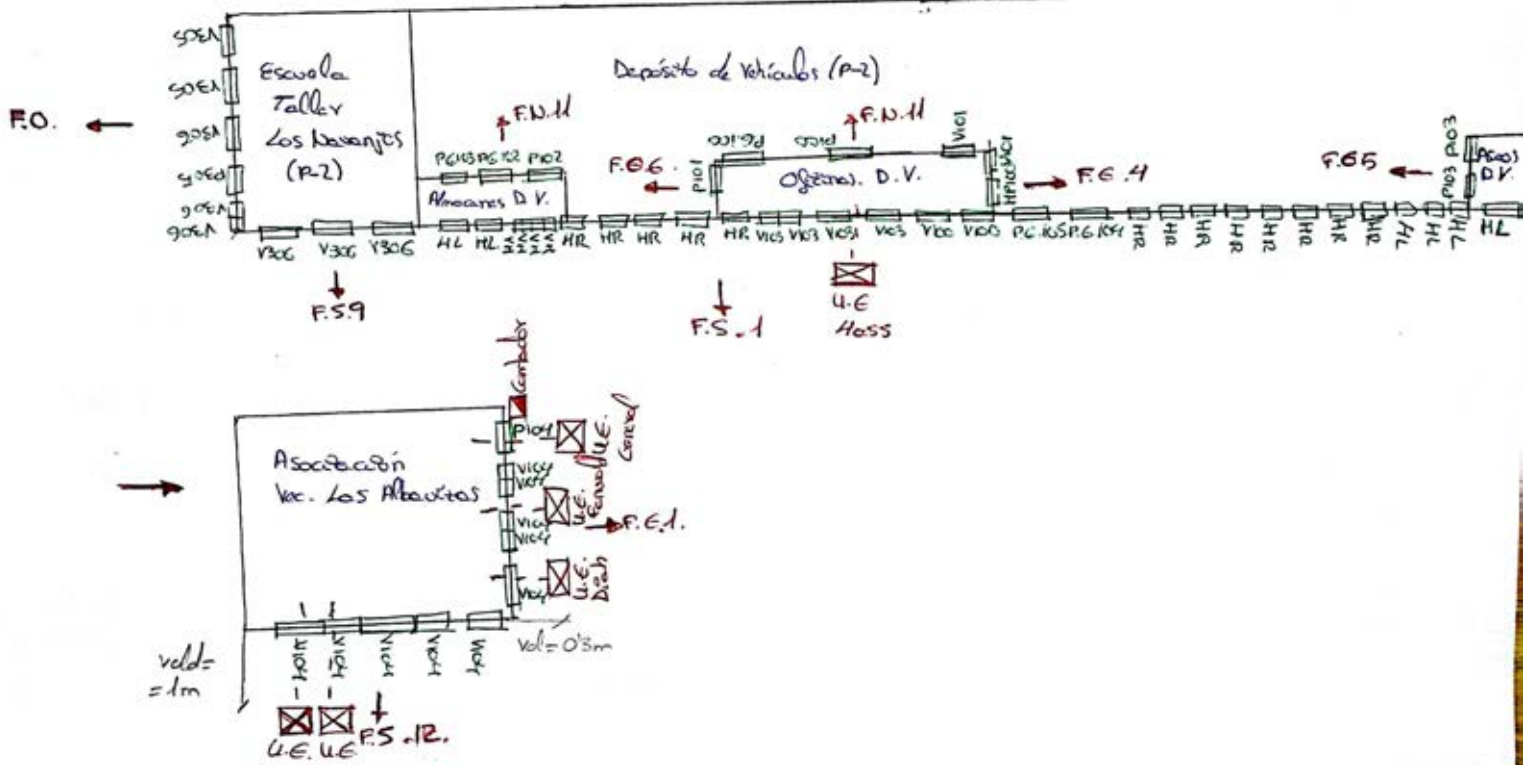 V305
V305
V306
V305
V306
F.O.
Escuela
Taller
Los Naranjos
(P-2)
Depósito de Vehículos (P-2)
F.N.11
F.N.11
PG.103 PG.102 P102
Almacenes D.V.
F.O.6.
P101
PG.100
P100
V101
V101
Oficinas. D.V.
F.E.4
F.O5
P103
P103
Aseos
D.V.
V306
V306
V306
HL
HL
HR
HR
HR
HR
HR
V103
V103
V103
V103
V100
V100
P.G.105
P.G.104
HR
HR
HR
HR
HR
HR
HR
HL
HL
HL
HL
F.S.9
F.S.1
U.E
4055
Contador
P104
U.E.
General
Asociación
Vec. Los
V104
V104
U.E.
V104
V104
F.E.1.
V104
U.E.
V104
V104
V104
V104
V104
vol= 0'3m
= 1m
U.E.
U.E
F.S.12.